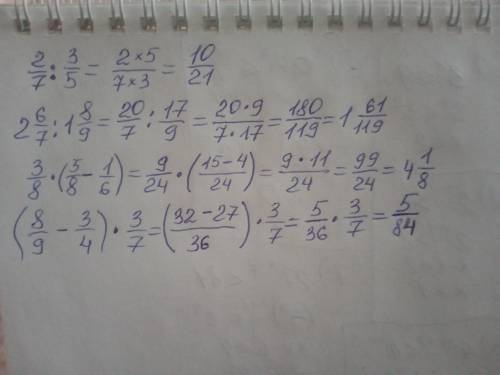 2/7 : 3/5 = 2×5/7×3 = 10/21
2 6/7 : 1 8/9 = 20/7 : 17/9 = 20·9/7·17 = 180/119 = 1 61/119
3/8 · (5/8 - 1/6) = 9/24 · (15-4/24) = 9·11/24 = 99/24 = 4 1/8
(8/9 - 3/4) · 3/7 = (32-27/36) · 3/7 = 5/36 · 3/7 = 5/84